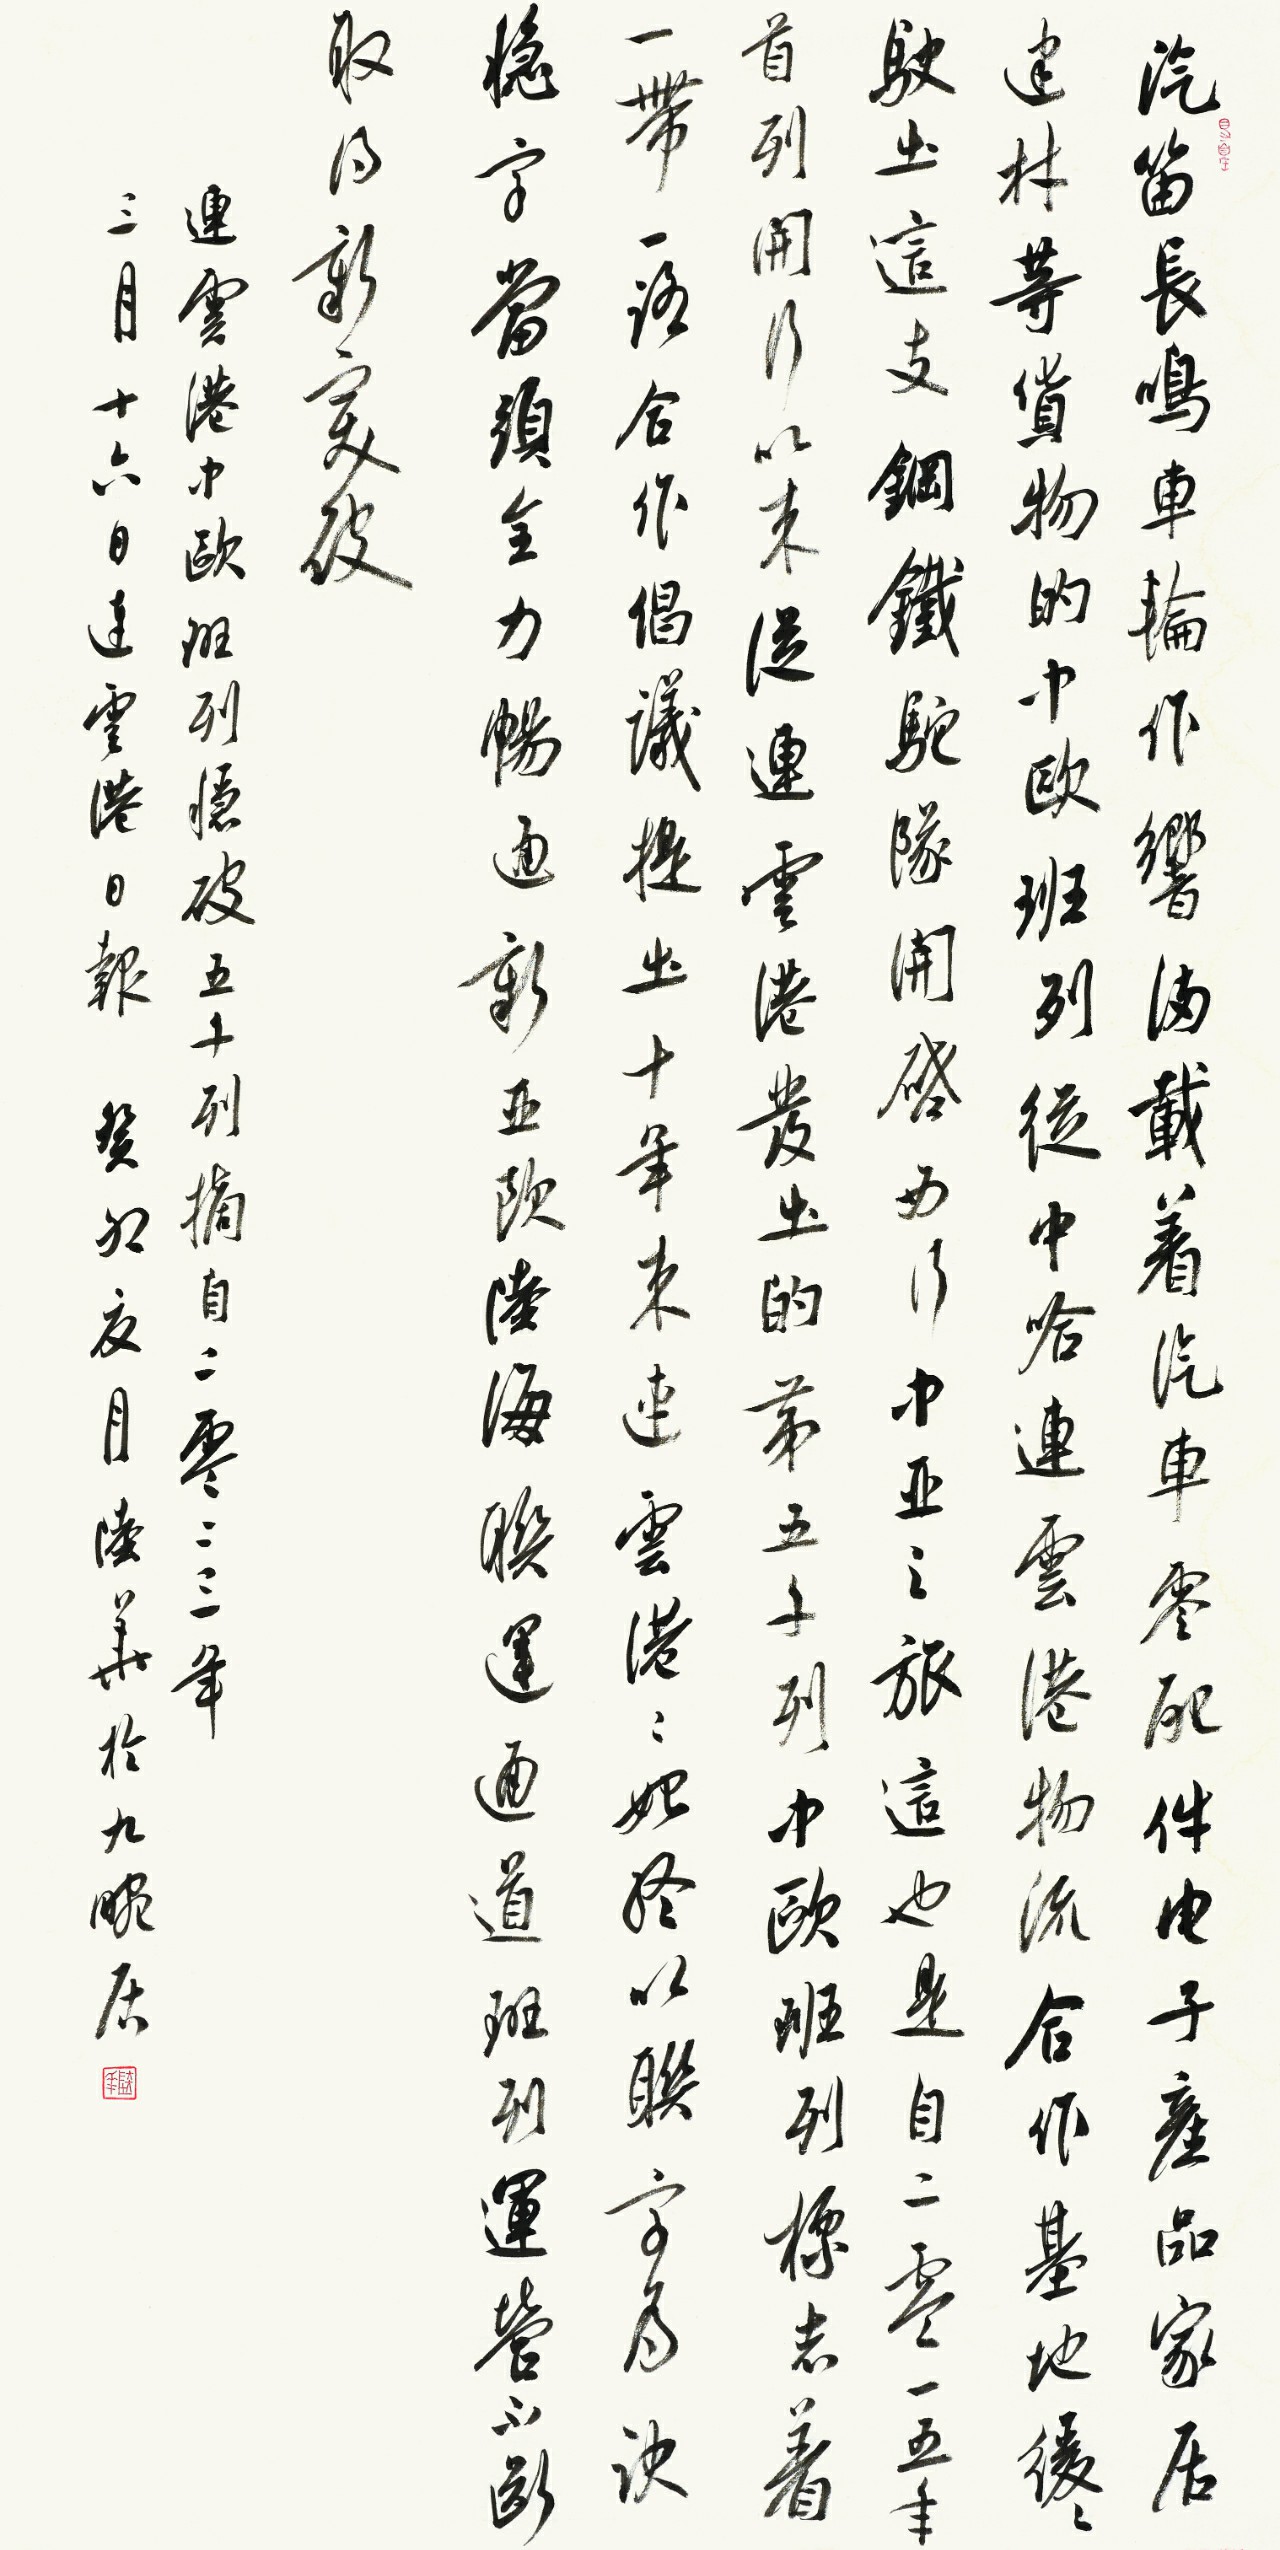 汽笛長鳴車輪作響滿載着汽車零配件电子產品家居
建材等貨物的中歐班列從中哈連雲港物流合作基地緩〻
駛出這支鋼鐵駝隊開啓西行中亞之旅這也是自二零一五年
首列開行以来從連雲港發出的第五千列中歐班列標志着
一帶一路合作倡議提出十年来連雲港〻始終以聯字為訣
穩字當頭全力暢通新亞欧陸海聯運通道班列運營不斷
取得新突破
連雲港中歐班列穩破五千列摘自二零二三年
三月十六日連雲港日報 癸卯夜月陸華於九畹居